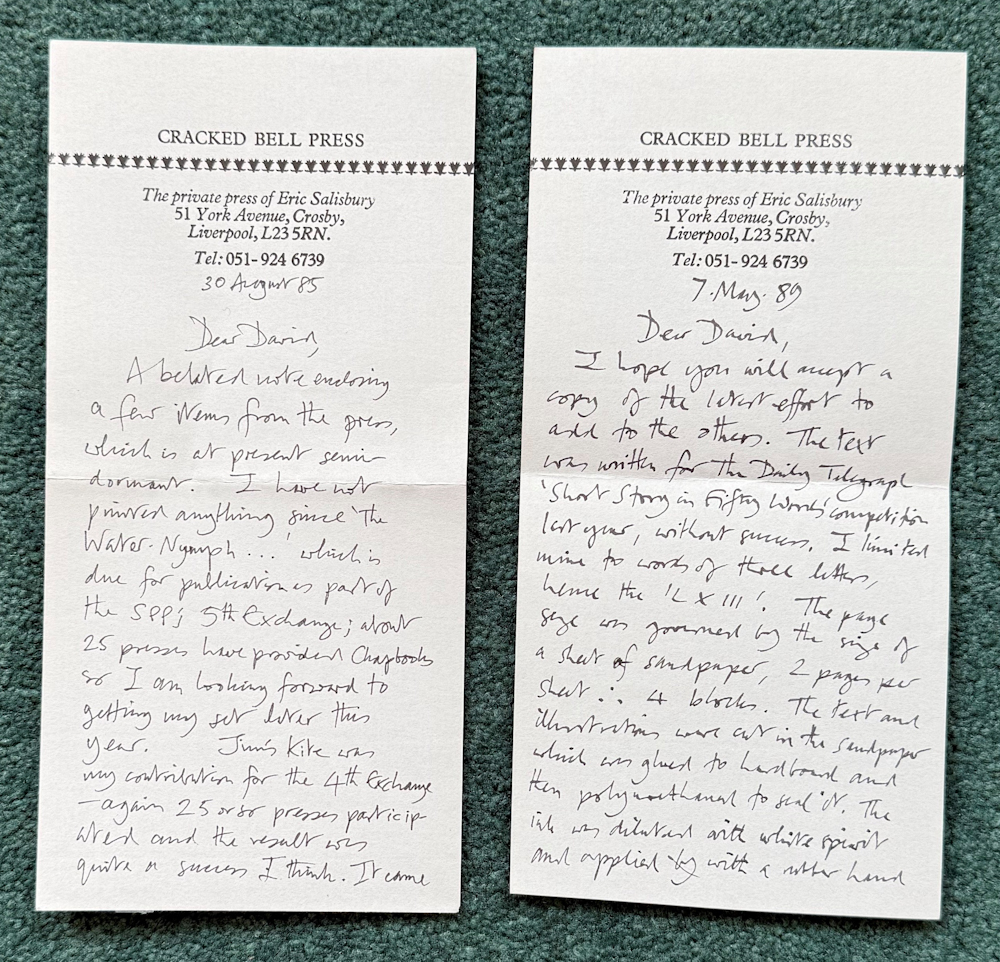 CRACKED BELL PRESS
The private press of Eric Salisbury
51 York Avenue, Crosby,
Liverpool, L23 5RN.
Tel: 051-924 6739
30 August 85
Dear David,
A belated note enclosing
a few items from the press,
which is at present semi-
dormant. I have not
printed anything since 'The
Water-Nymph ...' which is
due for publication as part of
the SPP's 5th Exchange; about
25 presses have provided Chapbooks
so I am looking forward to
getting my set later this
year. Jim's Kite was
my contribution for the 4th Exchange
– again 25 or so presses particip-
ated and the result was
quite a success I think. It came
CRACKED BELL PRESS
The private press of Eric Salisbury
51 York Avenue, Crosby,
Liverpool, L23 5RN.
Tel: 051-924 6739
7. May. 89
Dear David,
I hope you will accept a
copy of the latest effort to
add to the others. The text
was written for the Daily Telegraph
'Short Story in Fifty Words' competition
last year, without success. I limited
mine to words of three letters,
hence the 'L X III'. The page
size was governed by the size of
a sheet of sandpaper, 2 pages per
sheet ∴ 4 blocks. The text and
illustrations were cut in the sandpaper
which was glued to hardboard and
then polyurethaned to seal it. The
ink was diluted with white spirit
and applied by with a rubber hand